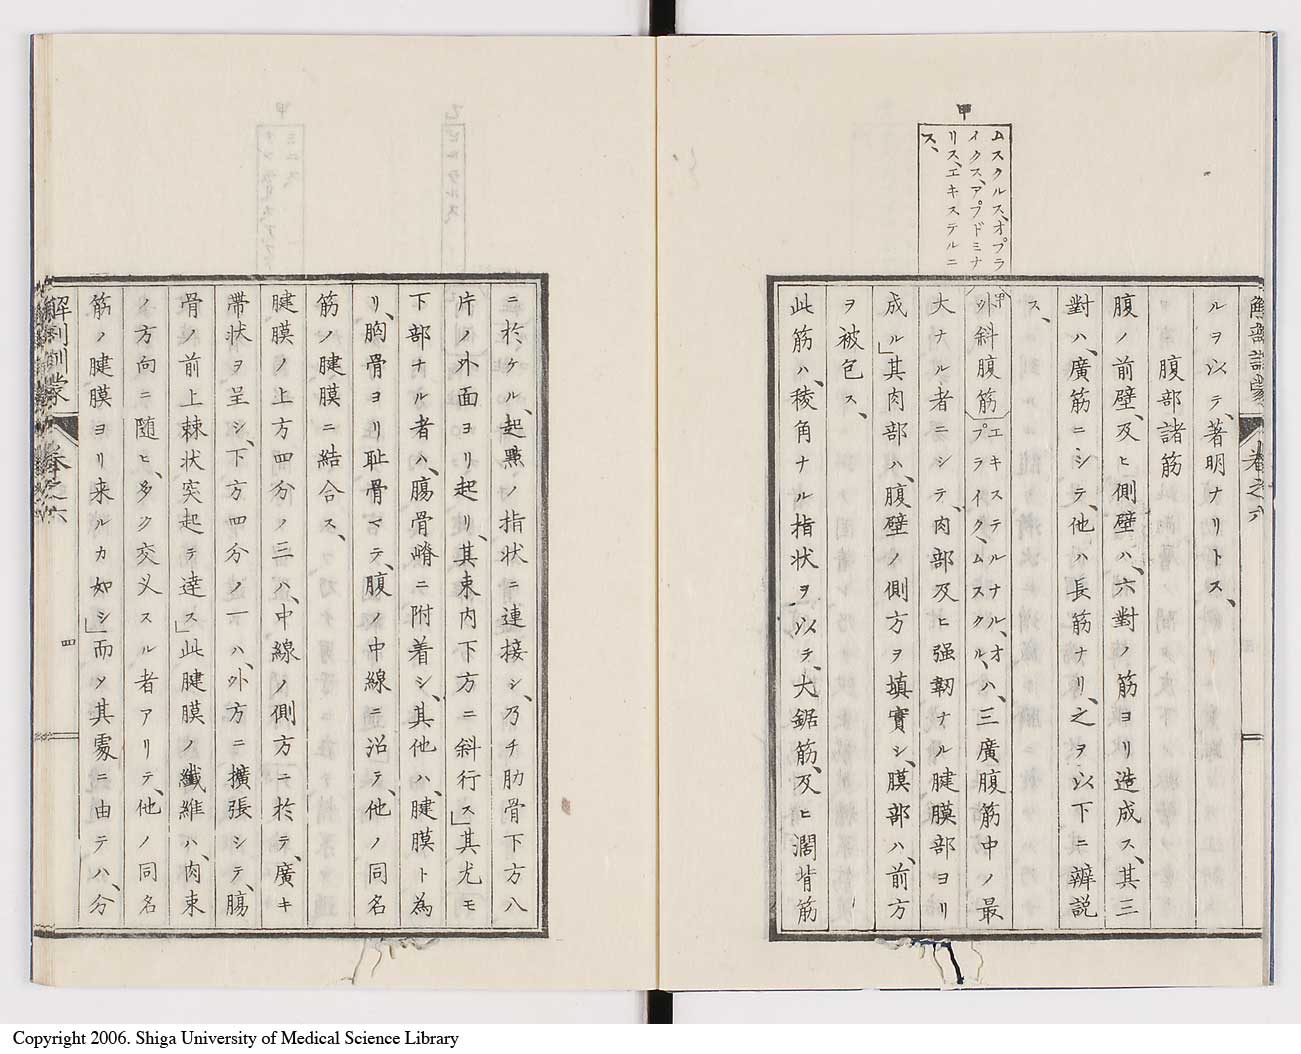 甲
ムスクルス、オプラ
イクス、アブドミナ
リス、エキステルニ
ス、
解剖訓蒙 巻之六
ルヲ以テ、著明ナリトス、
腹部諸筋
腹ノ前壁、及ヒ側壁ハ、六對ノ筋ヨリ造成ス、其三
對ハ、廣筋ニシテ、他ハ長筋ナリ、之ヲ以下ニ辨説
ス、
甲
外斜腹筋〔エキステルナル、オプライク、ムスクル〕ハ、三廣腹筋中ノ最
大ナル者ニシテ、肉部及ヒ强靭ナル腱膜部ヨリ
成ル」其肉部ハ、腹壁ノ側方ヲ塡實シ、膜部ハ、前方
ヲ被包ス、
此筋ハ、稜角ナル指状ヲ以テ、大鋸筋、及ヒ濶背筋
ニ於ケル、起點ノ指状ニ連接シ、乃チ肋骨下方八
片ノ外面ヨリ起リ、其束内下方ニ斜行ス」其尤モ
下部ナル者ハ、膓骨嵴ニ附着シ、其他ハ、腱膜ト為
リ、胸骨ヨリ耻骨マテ、腹ノ中線ニ沿テ、他ノ同名
筋ノ腱膜ニ結合ス、
腱膜ノ上方四分ノ三ハ、中線ノ側方ニ於テ、廣キ
帶状ヲ呈シ、下方四分ノ一ハ、外方ニ擴張シテ、膓
骨ノ前上棘状突起テ達ス」此腱膜ノ纖維ハ、肉束
ノ方向ニ隨ヒ、多ク交叉スル者アリテ、他ノ同名
筋ノ腱膜ヨリ来ルカ如シ」而〆其處ニ由テハ、分
解剖訓蒙 巻之六 四
Copyright 2006. Shiga University of Medical Science Library